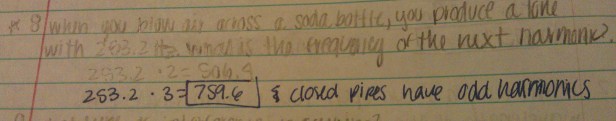 * 8) When you blow air across a soda bottle, you produce a tone
with 253.2 Hz. What is the frequency of the next harmonic?
253.2 · 2 = 506.4
253.2 · 3 = 759.6 } closed pipes have odd harmonics